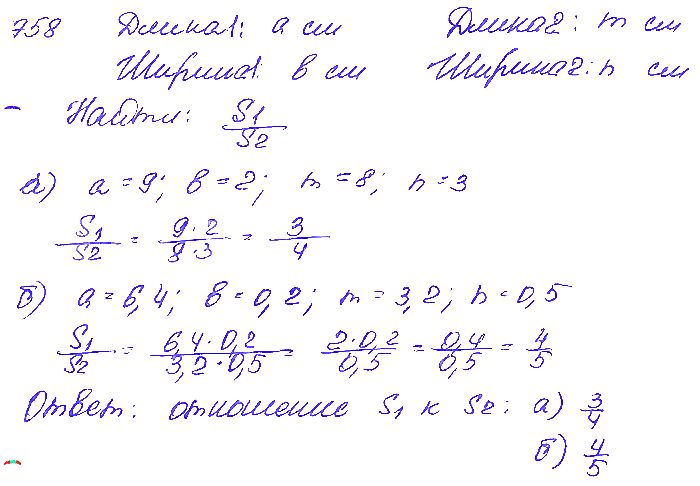 758 Длина1: a см Длина2: m см
Ширина1: b см Ширина2: n см
Найти: S1/S2
а) a=9; b=2; m=8; n=3
S1/S2 = 9·2/8·3 = 3/4
б) a=6,4; b=0,2; m=3,2; n=0,5
S1/S2 = 6,4·0,2/3,2·0,5 = 2·0,2/0,5 = 0,4/0,5 = 4/5
Ответ: отношение S1 к S2: а) 3/4
б) 4/5